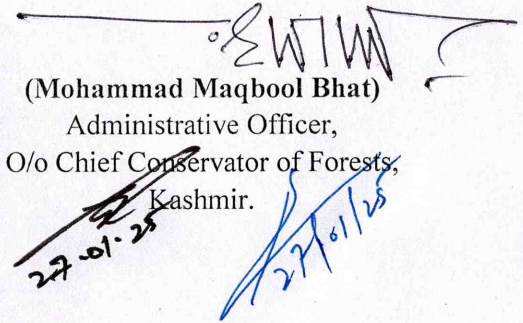 (Mohammad Maqbool Bhat)
Administrative Officer,
O/o Chief Conservator of Forests,
Kashmir.
27-01-25
27/01/25